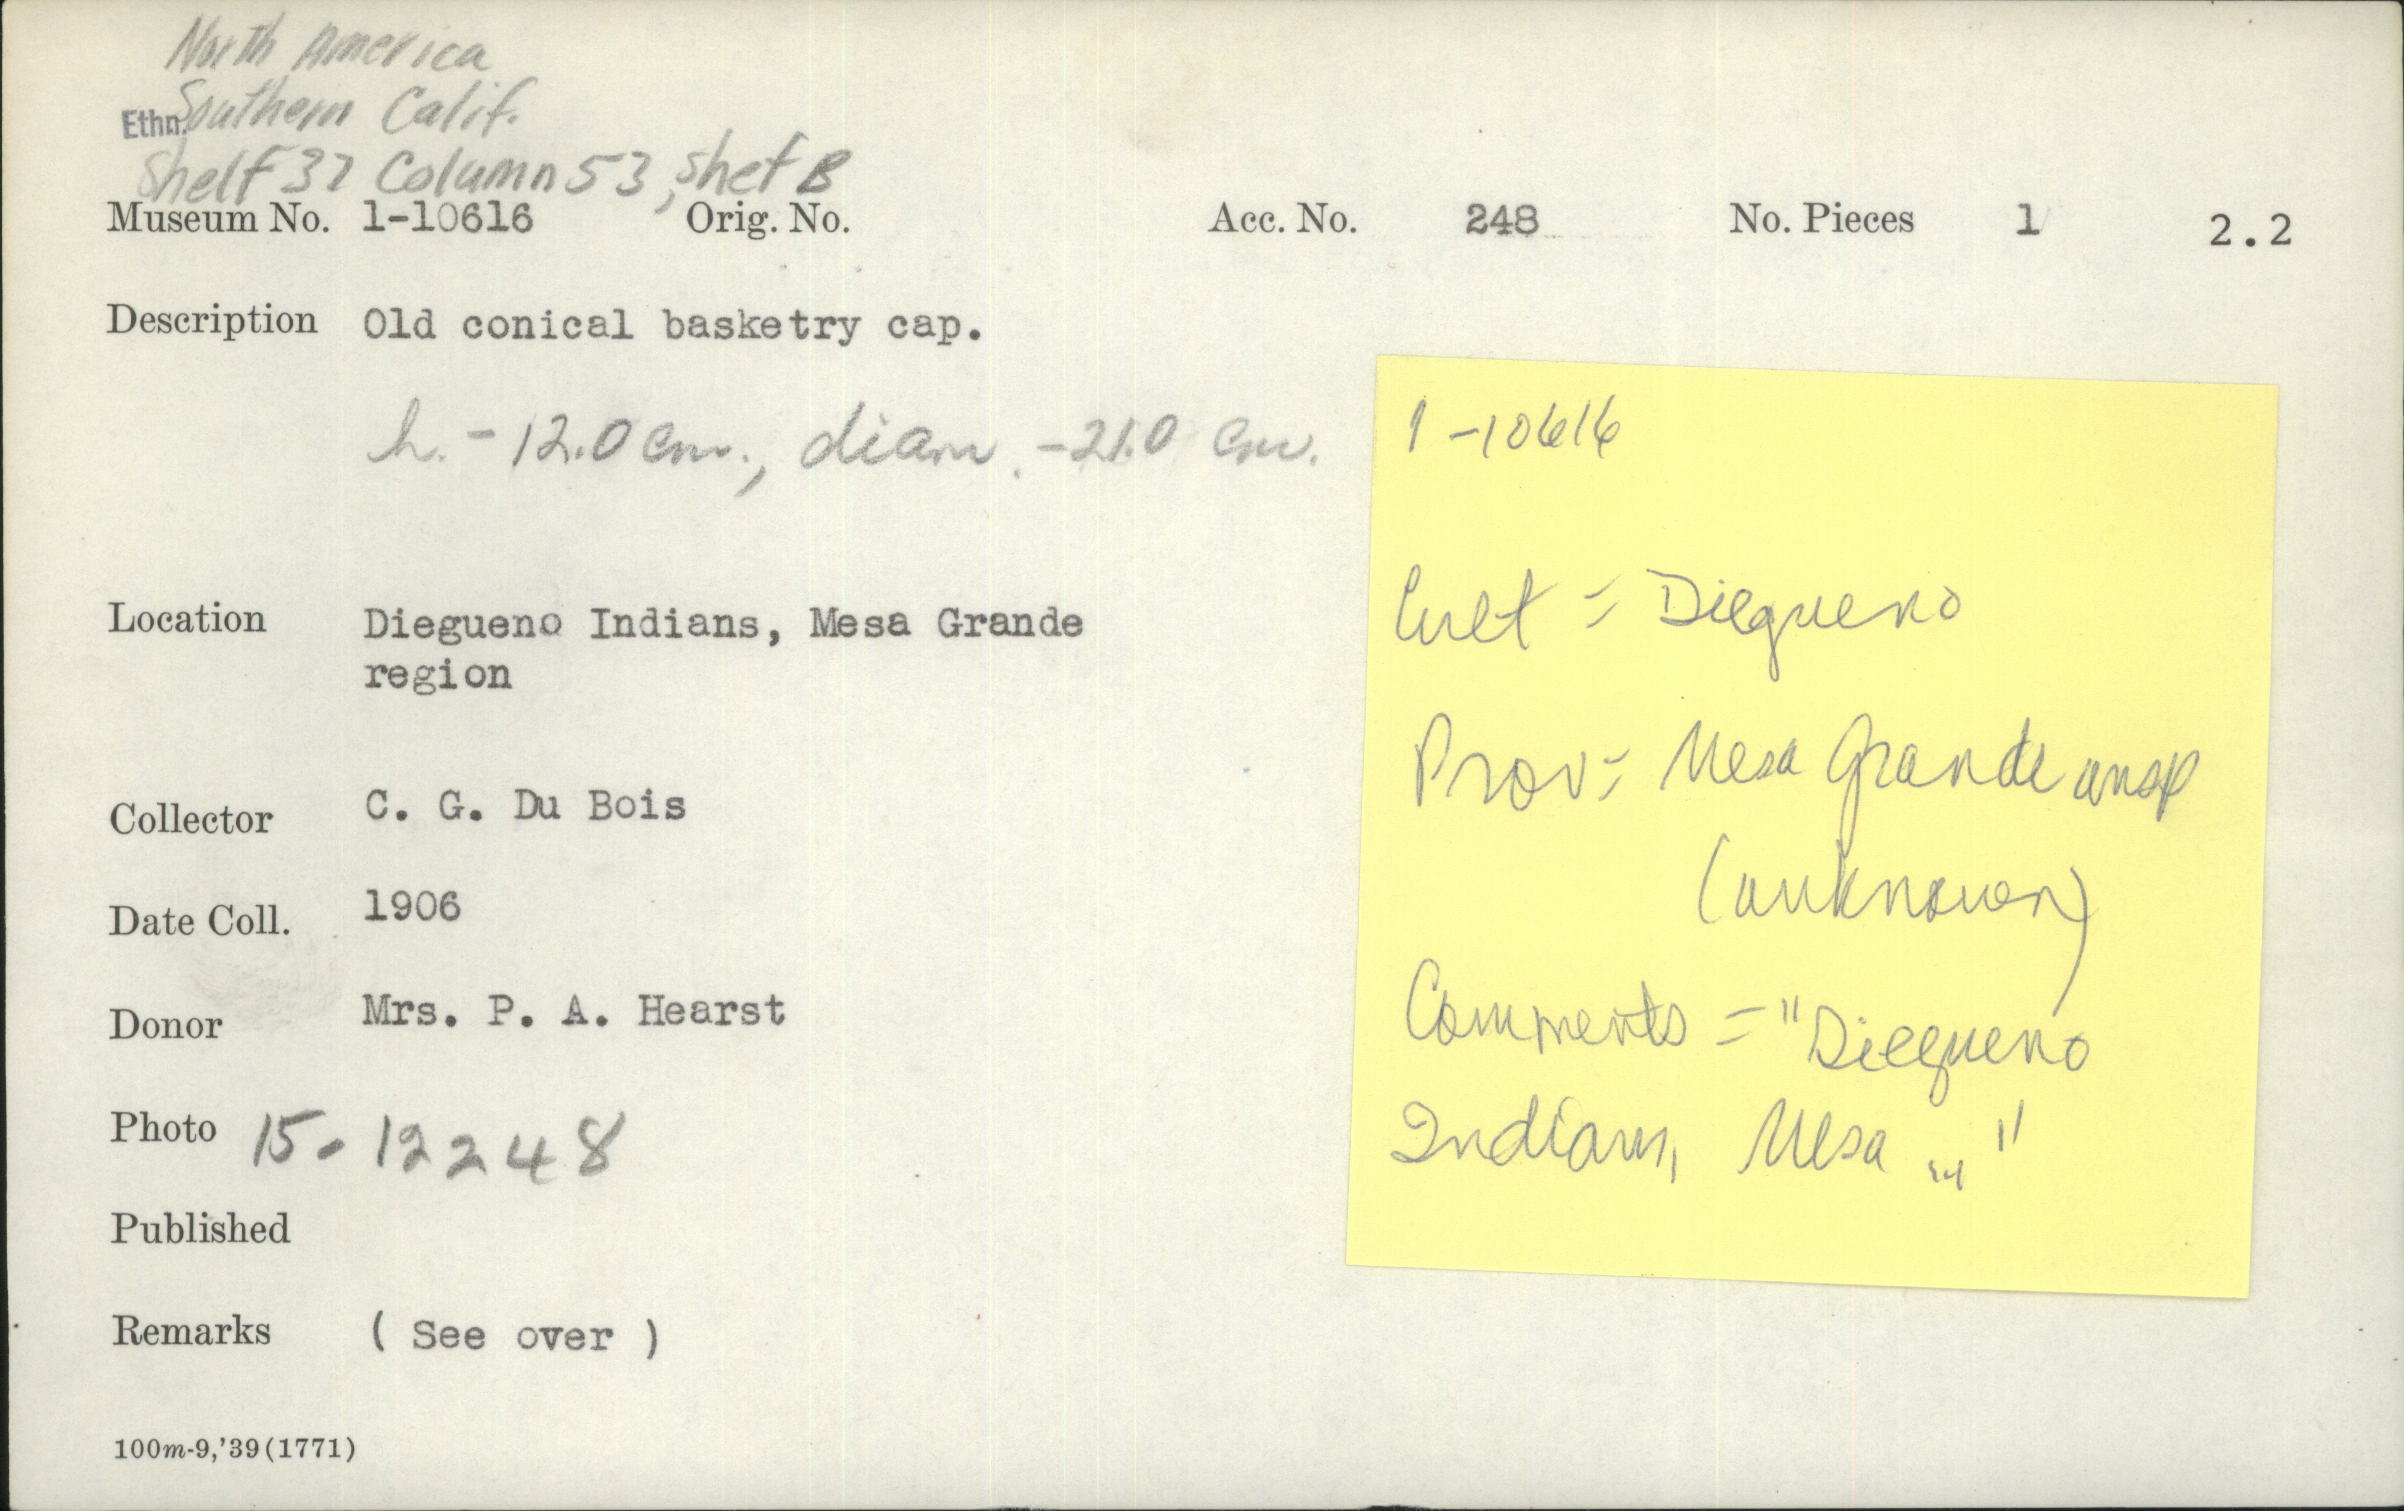 North America
Ethn. Southern Calif.
Shelf 37 Column 53, Shef B
Museum No. 1-10616 Orig. No. Acc. No. 248 No. Pieces 1 2.2
Description Old conical basketry cap.
h. - 12.0 cm., diam. - 21.0 cm.
Location Diegueno Indians, Mesa Grande
region
Collector C. G. Du Bois
Date Coll. 1906
Donor Mrs. P. A. Hearst
Photo 15-12248
Published
Remarks ( See over )
100m-9,'39(1771)
1-10616
Cult = Diegueno
Prov = Mesa Grande
(unknown)
Comments = "Diegueno
Indians, Mesa ..."